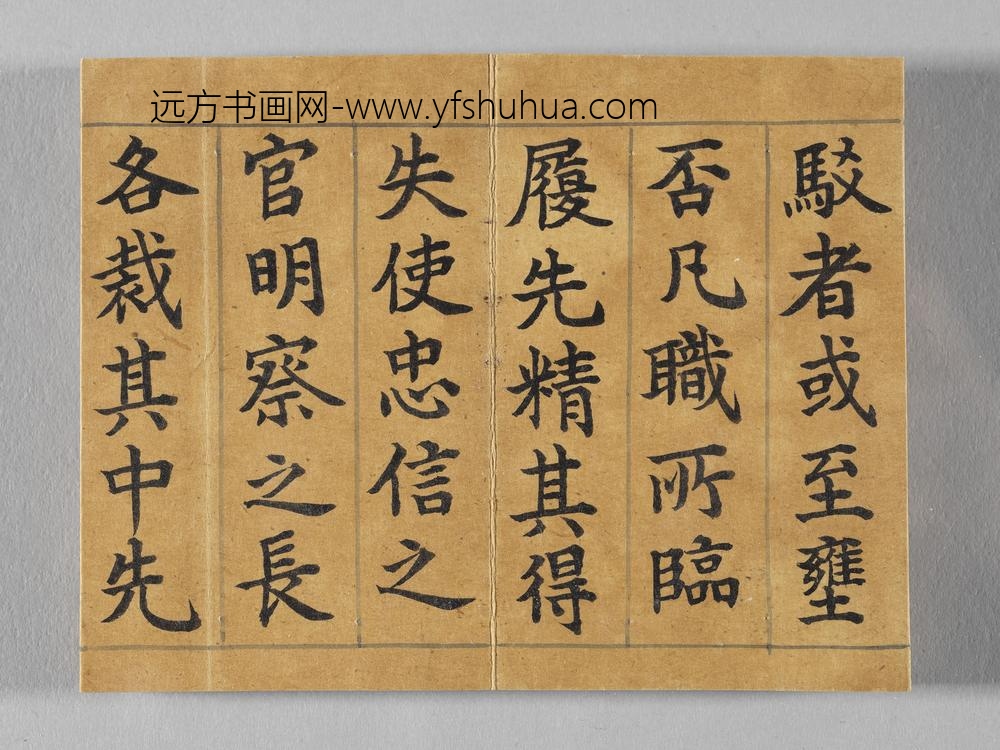 远方书画网-www.yfshuhua.com
駮者或至壅
否凡職所臨
履先精其得
失使忠信之
官明察之長
各裁其中先